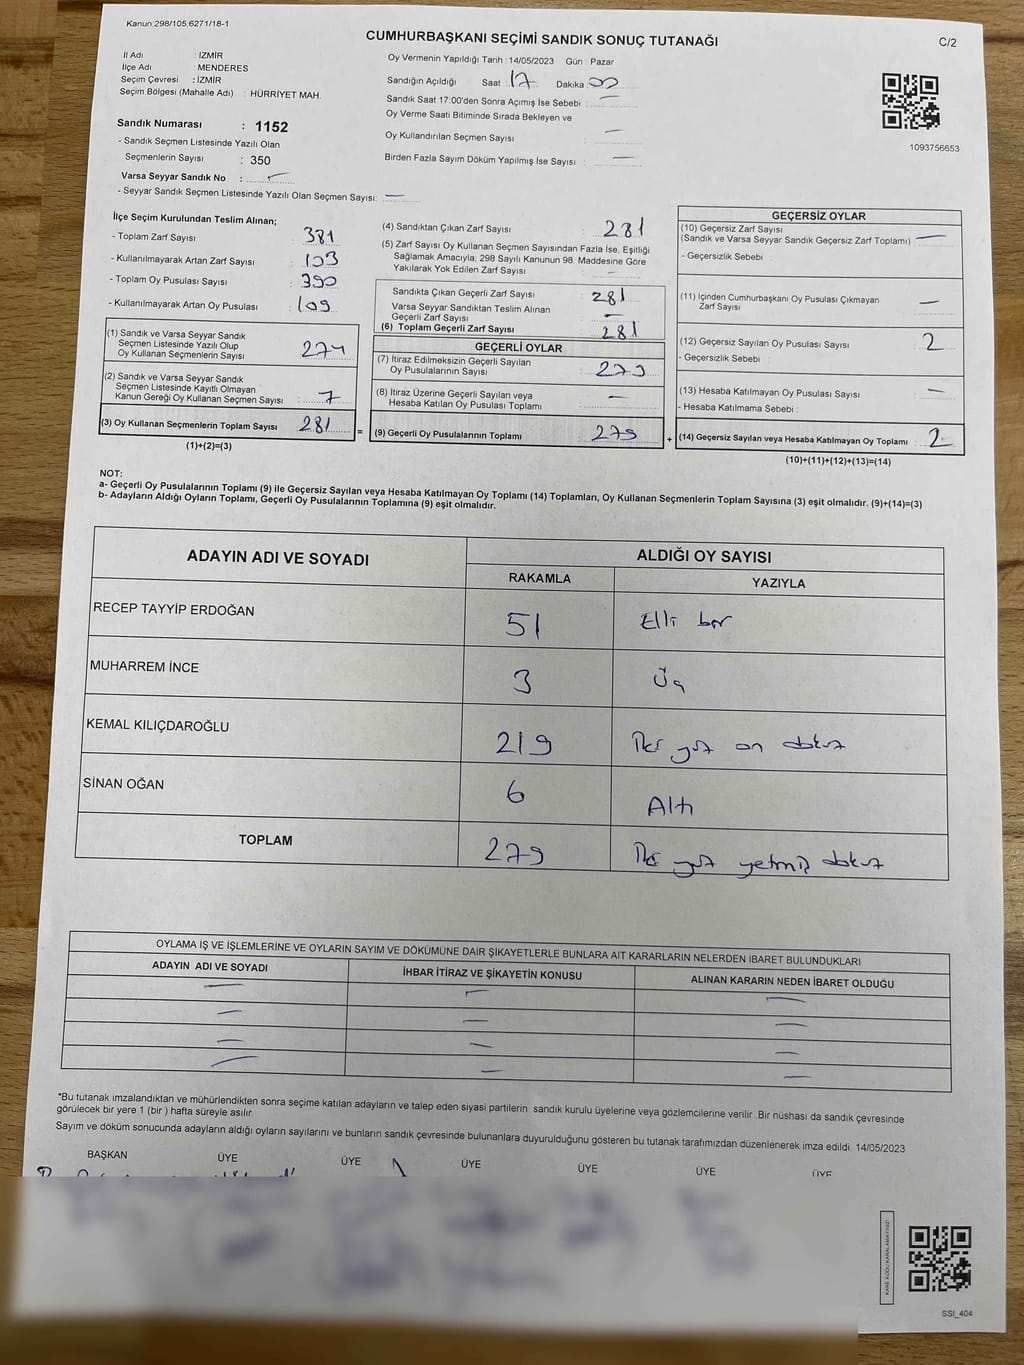 Kanun:298/105,6271/18-1
CUMHURBAŞKANI SEÇİMİ SANDIK SONUÇ TUTANAĞI
C/2
İl Adı : İZMİR
İlçe Adı : MENDERES
Seçim Çevresi : İZMİR
Seçim Bölgesi (Mahalle Adı) : HÜRRİYET MAH.
Oy Vermenin Yapıldığı Tarih : 14/05/2023 Gün : Pazar
Sandığın Açıldığı Saat 17 Dakika : 00
Sandık Saat 17:00'den Sonra Açımış İse Sebebi : —
Oy Verme Saati Bitiminde Sırada Bekleyen ve
Oy Kullandırılan Seçmen Sayısı —
Birden Fazla Sayım Döküm Yapılmış İse Sayısı : —
1093756653
Sandık Numarası : 1152
- Sandık Seçmen Listesinde Yazılı Olan
Seçmenlerin Sayısı : 350
Varsa Seyyar Sandık No : —
- Seyyar Sandık Seçmen Listesinde Yazılı Olan Seçmen Sayısı: —
İlçe Seçim Kurulundan Teslim Alınan;
- Toplam Zarf Sayısı : 381
- Kullanılmayarak Artan Zarf Sayısı : 103
- Toplam Oy Pusulası Sayısı : 390
- Kullanılmayarak Artan Oy Pusulası : 109
(1) Sandık ve Varsa Seyyar Sandık
Seçmen Listesinde Yazılı Olup
Oy Kullanan Seçmenlerin Sayısı : 274
(2) Sandık ve Varsa Seyyar Sandık
Seçmen Listesinde Kayıtlı Olmayan
Kanun Gereği Oy Kullanan Seçmen Sayısı : 7
(3) Oy Kullanan Seçmenlerin Toplam Sayısı : 281
(1)+(2)=(3)
=
(4) Sandıktan Çıkan Zarf Sayısı : 281
(5) Zarf Sayısı Oy Kullanan Seçmen Sayısından Fazla İse, Eşitliği
Sağlamak Amacıyla, 298 Sayılı Kanunun 98. Maddesine Göre
Yakılarak Yok Edilen Zarf Sayısı : —
Sandıkta Çıkan Geçerli Zarf Sayısı 281
Varsa Seyyar Sandıktan Teslim Alınan
Geçerli Zarf Sayısı —
(6) Toplam Geçerli Zarf Sayısı 281
GEÇERLİ OYLAR
(7) İtiraz Edilmeksizin Geçerli Sayılan
Oy Pusulalarının Sayısı : 279
(8) İtiraz Üzerine Geçerli Sayılan veya
Hesaba Katılan Oy Pusulası Toplamı : —
(9) Geçerli Oy Pusulalarının Toplamı : 279
+
GEÇERSİZ OYLAR
(10) Geçersiz Zarf Sayısı
(Sandık ve Varsa Seyyar Sandık Geçersiz Zarf Toplamı) : —
- Geçersizlik Sebebi :
(11) İçinden Cumhurbaşkanı Oy Pusulası Çıkmayan
Zarf Sayısı : —
(12) Geçersiz Sayılan Oy Pusulası Sayısı : 2
- Geçersizlik Sebebi :
(13) Hesaba Katılmayan Oy Pusulası Sayısı : —
- Hesaba Katılmama Sebebi :
(14) Geçersiz Sayılan veya Hesaba Katılmayan Oy Toplamı : 2
(10)+(11)+(12)+(13)=(14)
NOT:
a- Geçerli Oy Pusulalarının Toplamı (9) ile Geçersiz Sayılan veya Hesaba Katılmayan Oy Toplamı (14) Toplamları, Oy Kullanan Seçmenlerin Toplam Sayısına (3) eşit olmalıdır. (9)+(14)=(3)
b- Adayların Aldığı Oyların Toplamı, Geçerli Oy Pusulalarının Toplamına (9) eşit olmalıdır.
ADAYIN ADI VE SOYADI ALDIĞI OY SAYISI
RAKAMLA YAZIYLA
RECEP TAYYİP ERDOĞAN 51 Elli bir
MUHARREM İNCE 3 Üç
KEMAL KILIÇDAROĞLU 219 İki yüz on dokuz
SİNAN OĞAN 6 Altı
TOPLAM 279 İki yüz yetmiş dokuz
OYLAMA İŞ VE İŞLEMLERİNE VE OYLARIN SAYIM VE DÖKÜMÜNE DAİR ŞİKAYETLERLE BUNLARA AİT KARARLARIN NELERDEN İBARET BULUNDUKLARI
ADAYIN ADI VE SOYADI İHBAR İTİRAZ VE ŞİKAYETİN KONUSU ALINAN KARARIN NEDEN İBARET OLDUĞU
— — —
— — —
— — —
— — —
*Bu tutanak imzalandıktan ve mühürlendikten sonra seçime katılan adayların ve talep eden siyasi partilerin sandık kurulu üyelerine veya gözlemcilerine verilir. Bir nüshası da sandık çevresinde
görülecek bir yere 1 (bir ) hafta süreyle asılır.
Sayım ve döküm sonucunda adayların aldığı oyların sayılarını ve bunların sandık çevresinde bulunanlara duyurulduğunu gösteren bu tutanak tarafımızdan düzenlenerek imza edildi. 14/05/2023
BAŞKAN ÜYE ÜYE ÜYE ÜYE ÜYE ÜYE
KARE KODU KARALAMAYINIZ!
SSI_404